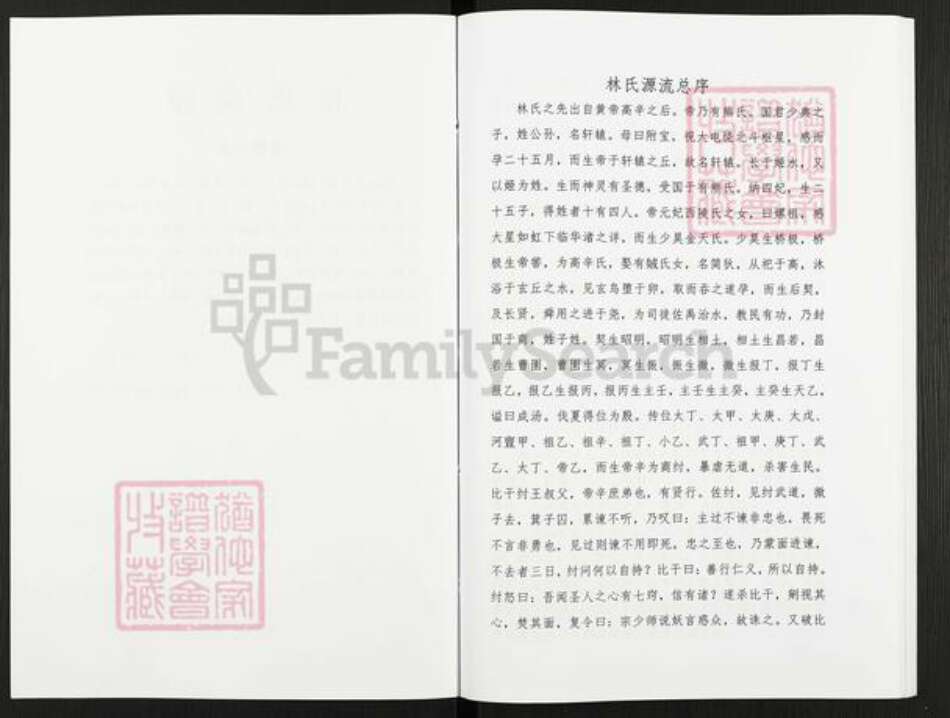 林氏源流总序
林氏之先出自黄帝高辛之后。帝乃有熊氏、国君少典之
子，姓公孙，名轩辕。母曰附宝，视大电绕北斗枢星，感而
孕二十五月，而生帝于轩辕之丘，故名轩辕。长于姬水，又
以姬为姓。生而神灵有圣德，受国于有熊氏。纳四妃，生二
十五子，得姓者十有四人。帝元妃西陵氏之女，曰嫘祖，感
大星如虹下临华渚之详，而生少昊金天氏。少昊生桥极，桥
极生帝喾，为高辛氏，娶有娀氏女，名简狄，从祀于高，沐
浴于玄丘之水，见玄鸟堕于卵，取而吞之遂孕，而生后契。
及长贤，舜用之进于尧，为司徒佐禹治水，教民有功，乃封
国于商，姓子姓。契生昭明，昭明生相土，相土生昌若，昌
若生曹圉，曹圉生冥，冥生振，振生微，微生报丁，报丁生
报乙，报乙生报丙，报丙生主壬，主壬生主癸，主癸生天乙，
谥曰成汤。伐夏得位为殷，传位太丁、太甲、太庚、太戊、
河亶甲、祖乙、祖辛、祖丁、小乙、武丁、祖甲、庚丁、武
乙、太丁、帝乙，而生帝辛为商纣，暴虐无道，杀害生民。
比干纣王叔父，帝辛庶弟也，有贤行。佐纣，见纣武道，微
子去，箕子囚，累谏不听，乃叹曰：主过不谏非忠也，畏死
不言非勇也，见过则谏不用即死，忠之至也，乃蒙面进谏，
不去者三日，纣问何以自持？比干曰：善行仁义，所以自持。
纣怒曰：吾闻圣人之心有七窍，信有诸？遂杀比干，剖视其
心，焚其面，复令曰：宗少师说妖言惑众，故诛之。又破比
FamilySearch
猶他家
譜學會
收藏
猶他家
譜學會
收藏